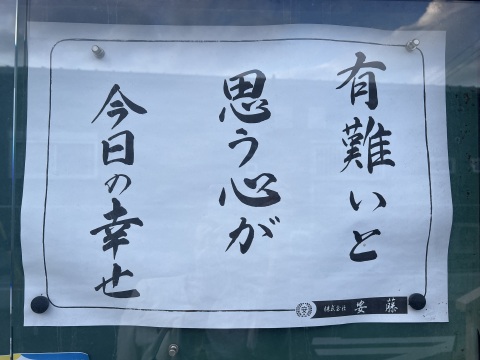 有難いと
思う心が
今日の幸せ
株式会社 安藤